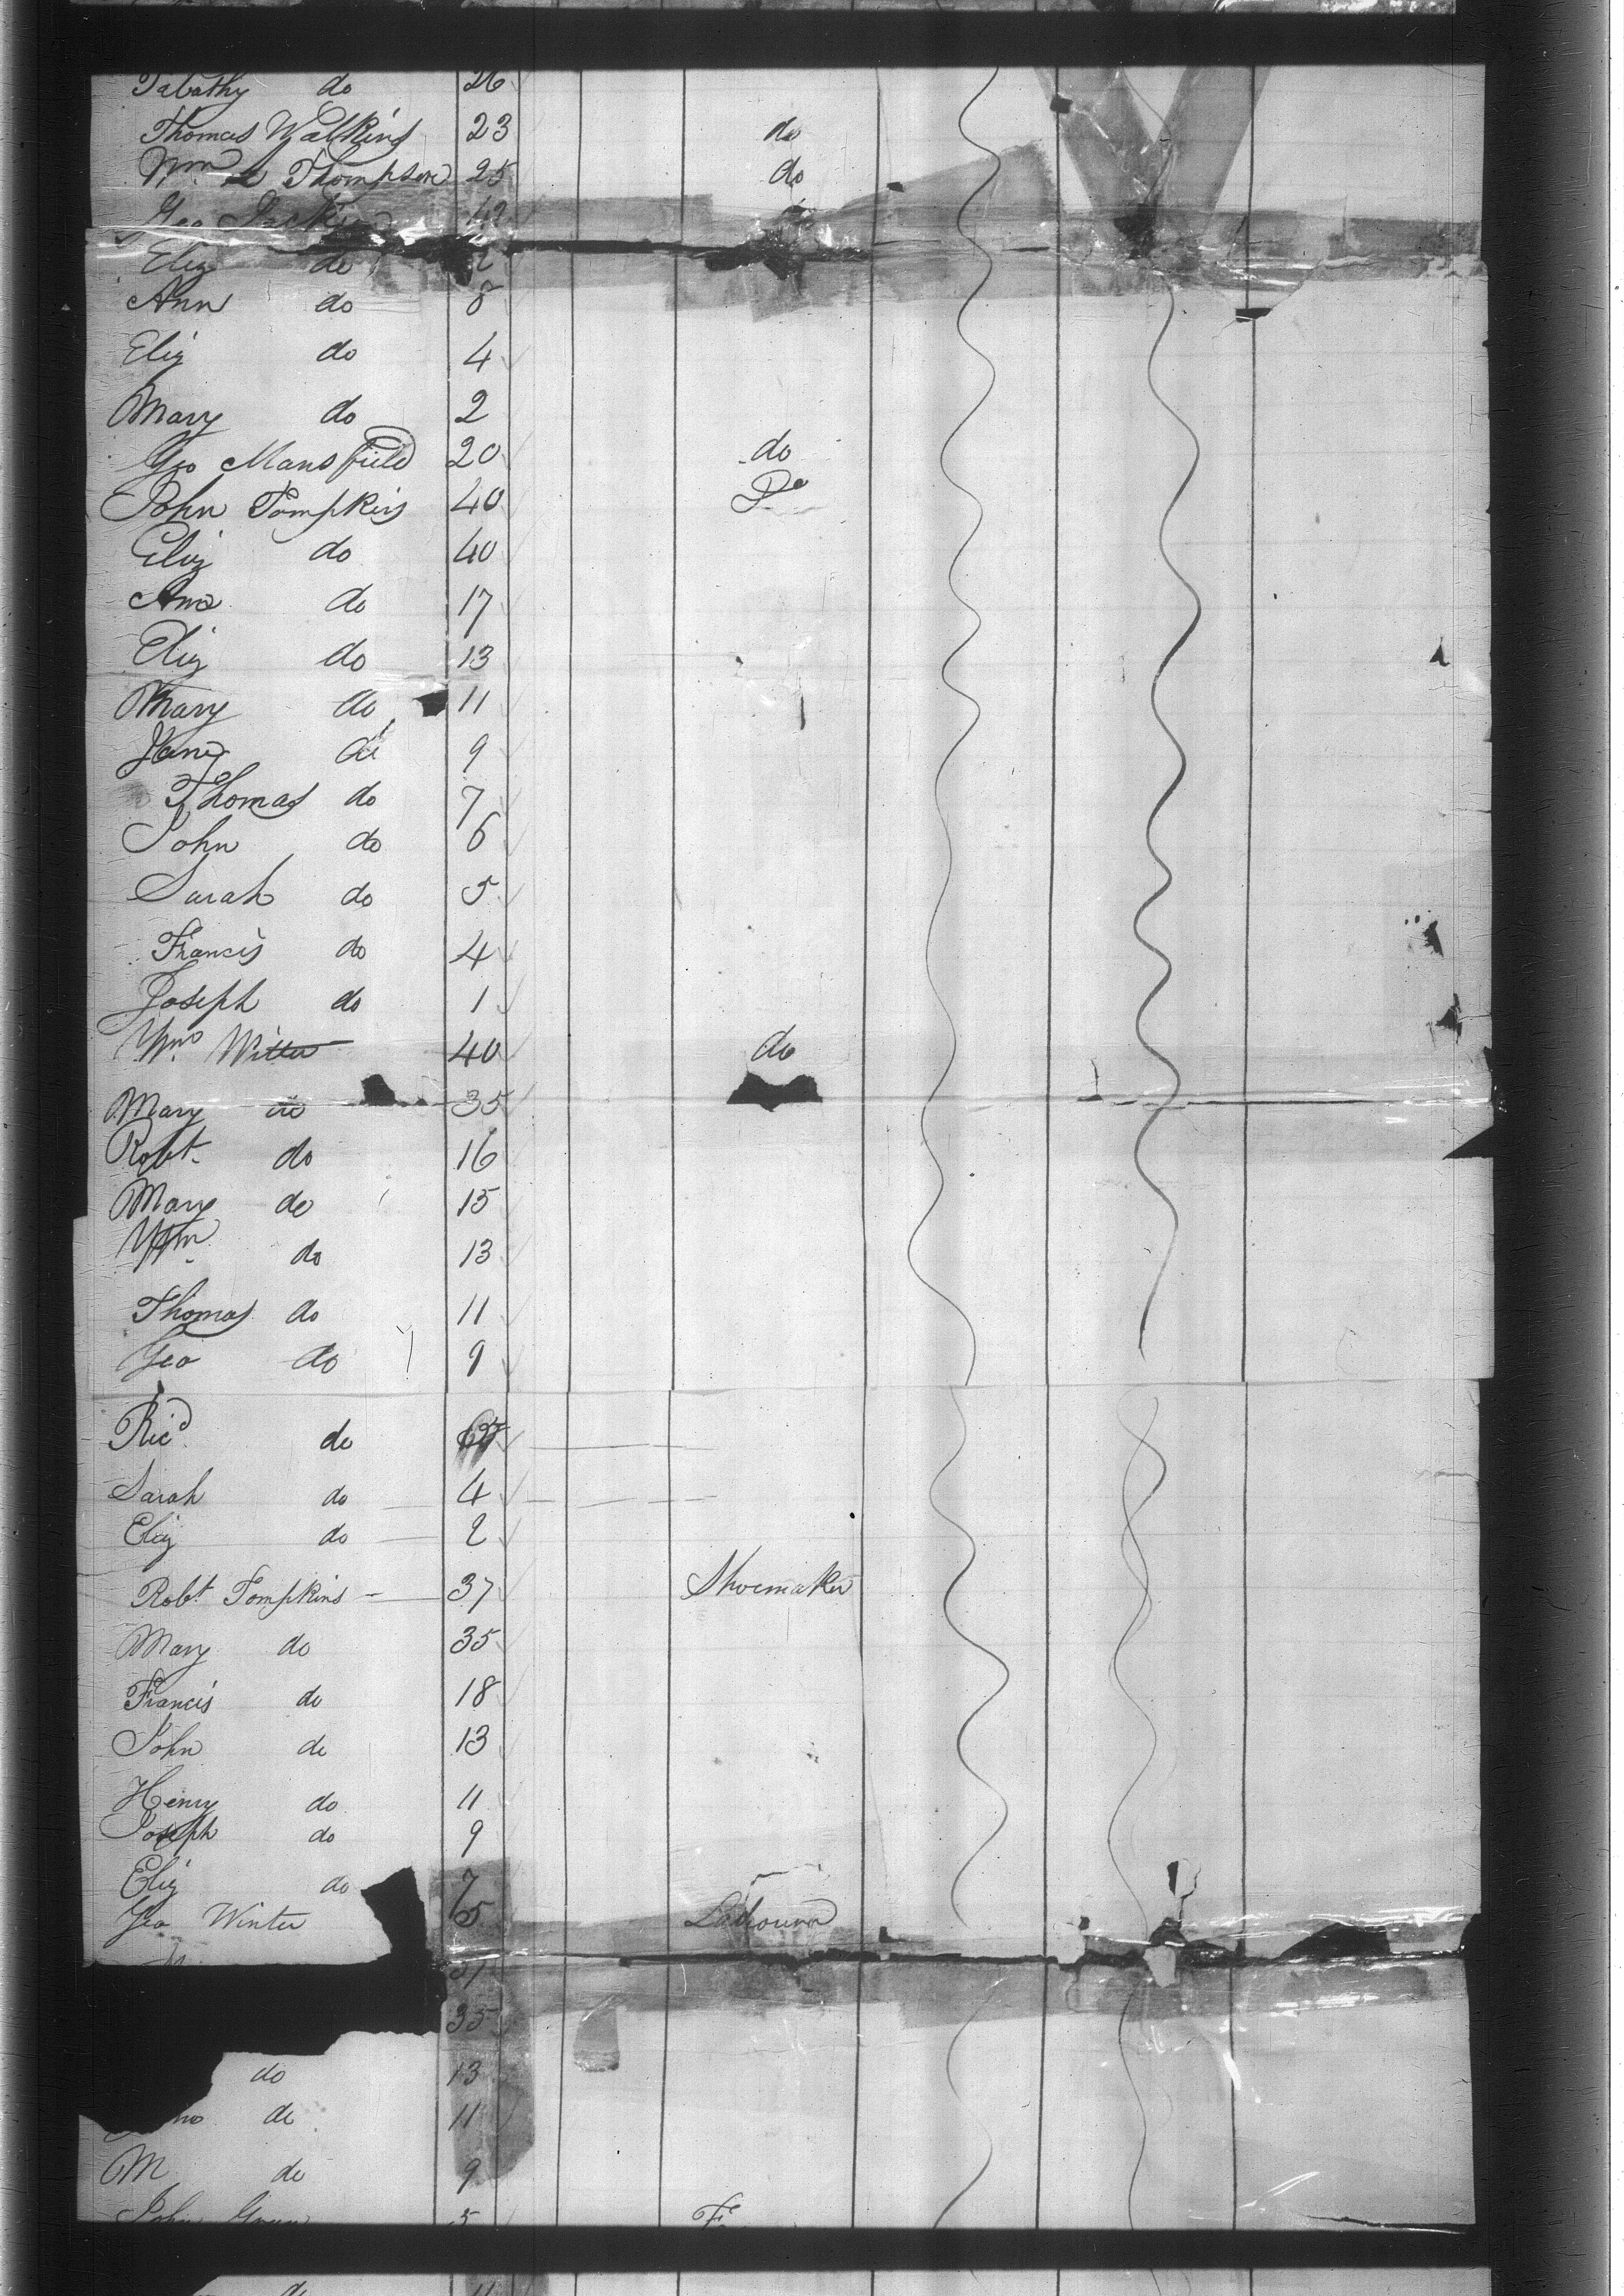 Tabathy do 26
Thomas Watkins 23 do
Wm Thompson 25 do
Geo Jack 42
Eliz do
Ann do 8
Eliz do 4
Mary do 2
Geo Mansfield 20 do
John Tompkins 40 Do
Eliz do 40
Ann do 17
Eliz do 13
Mary do 11
Jane do 9
Thomas do 7
John do 6
Sarah do 5
Francis do 4
Joseph do 1
Wm Witter 40 do
Mary do 35
Robt. do 16
Mary do 15
Wm. do 13
Thomas do 11
Geo do 9
Ricd do
Sarah do 4
Eliz do 2
Robt Tompkins 37 Shoemaker
Mary do 35
Francis do 18
John do 13
Henry do 11
Joseph do 9
Eliz do 7
Geo Winter 5 Labourer
37
35
do 13
do 11
M do 9
John 5
do 11